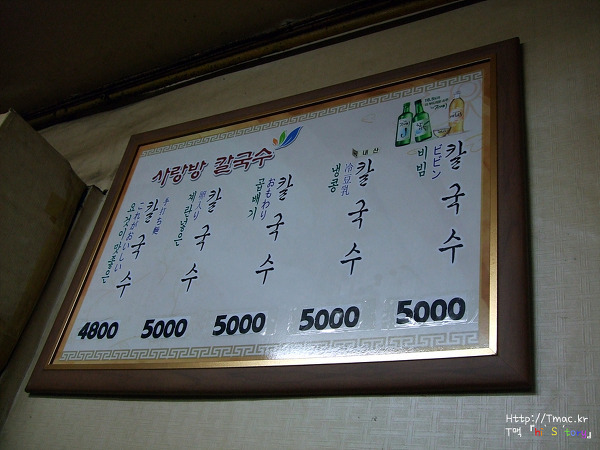 사랑방 칼국수
요것이맛좋은 칼국수
これがおいしい
手打ち麺
4800
계란넣은 칼국수
卵入り
5000
곱배기 칼국수
おもわり
5000
국내산
냉콩 칼국수
冷豆乳
5000
비빔 칼국수
ビビン
5000
Http://Tmac.kr